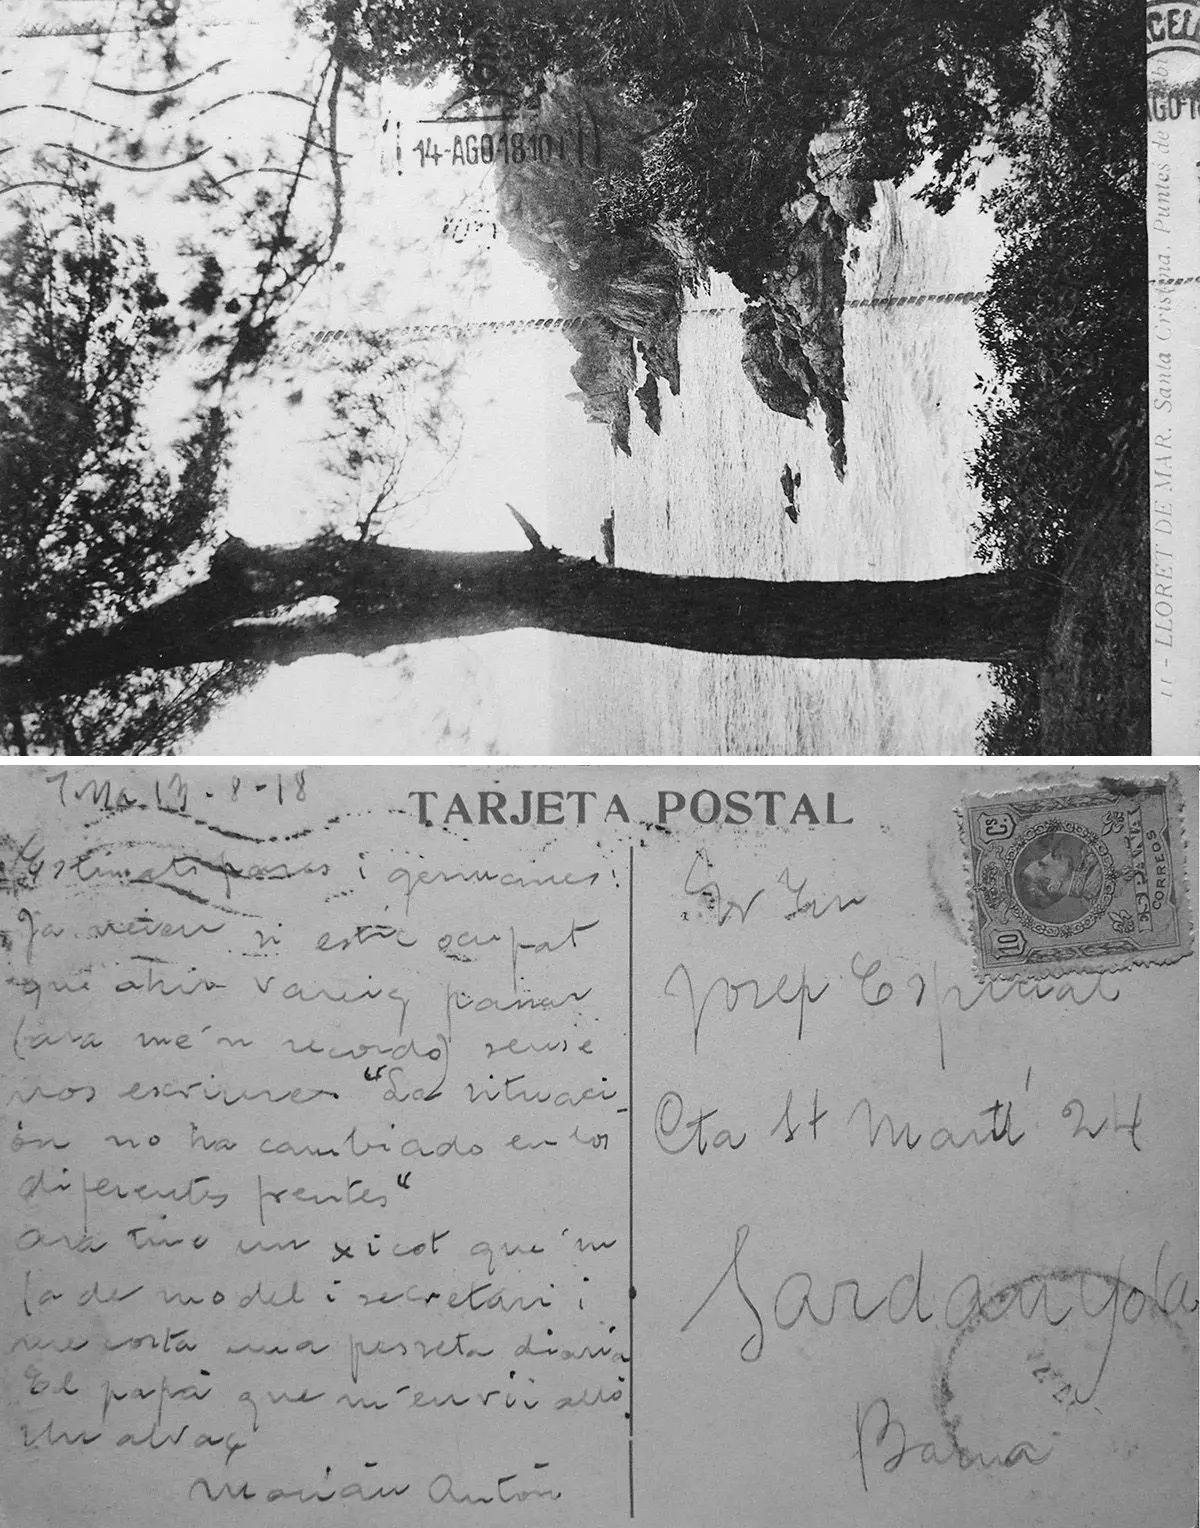 CEL
14-AGO 18 10
AGO 1
11 - LLORET DE MAR. Santa Cristina. Puntes de
TARJETA POSTAL
13-8-18
Estimats pares i germanes:
Ja veieu si estic ocupat
que ahir vareig passar
(ara me'n recordo) sense
vos escriure "La situaci-
ón no ha cambiado en los
diferentes frentes"
Ara tinc un xicot que'm
fa de model i secretari i
me costa una pesseta diaria
El papà que m'envii allò.
Un abraç
Marián Antón
Sr Dn
Josep Espinal
Cta St Martí 24
Sardanyola
Barna
10
Cs
ESPAÑA
CORREOS
10